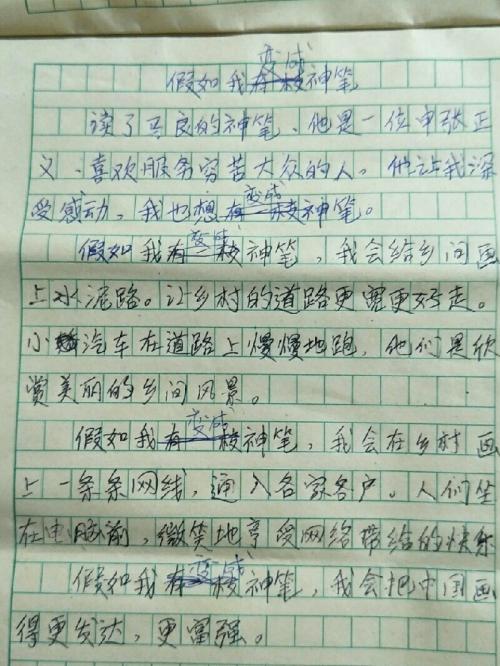 假如我变成神笔
读了马良的神笔、他是一位申张正
义、喜欢服务穷苦大众的人。他让我深
受感动、我也想变成神笔。
假如我变成神笔，我会给乡间画
上水泥路。让乡村的道路更宽更好走。
小汽车在道路上慢慢地跑，他们是欣
赏美丽的乡间风景。
假如我变成神笔，我会在乡村画
上一条条网线，通入各家客户。人们坐
在电脑前，微笑地享受网络带给的快乐
假如我变成神笔，我会把中国画
得更发达，更富强。